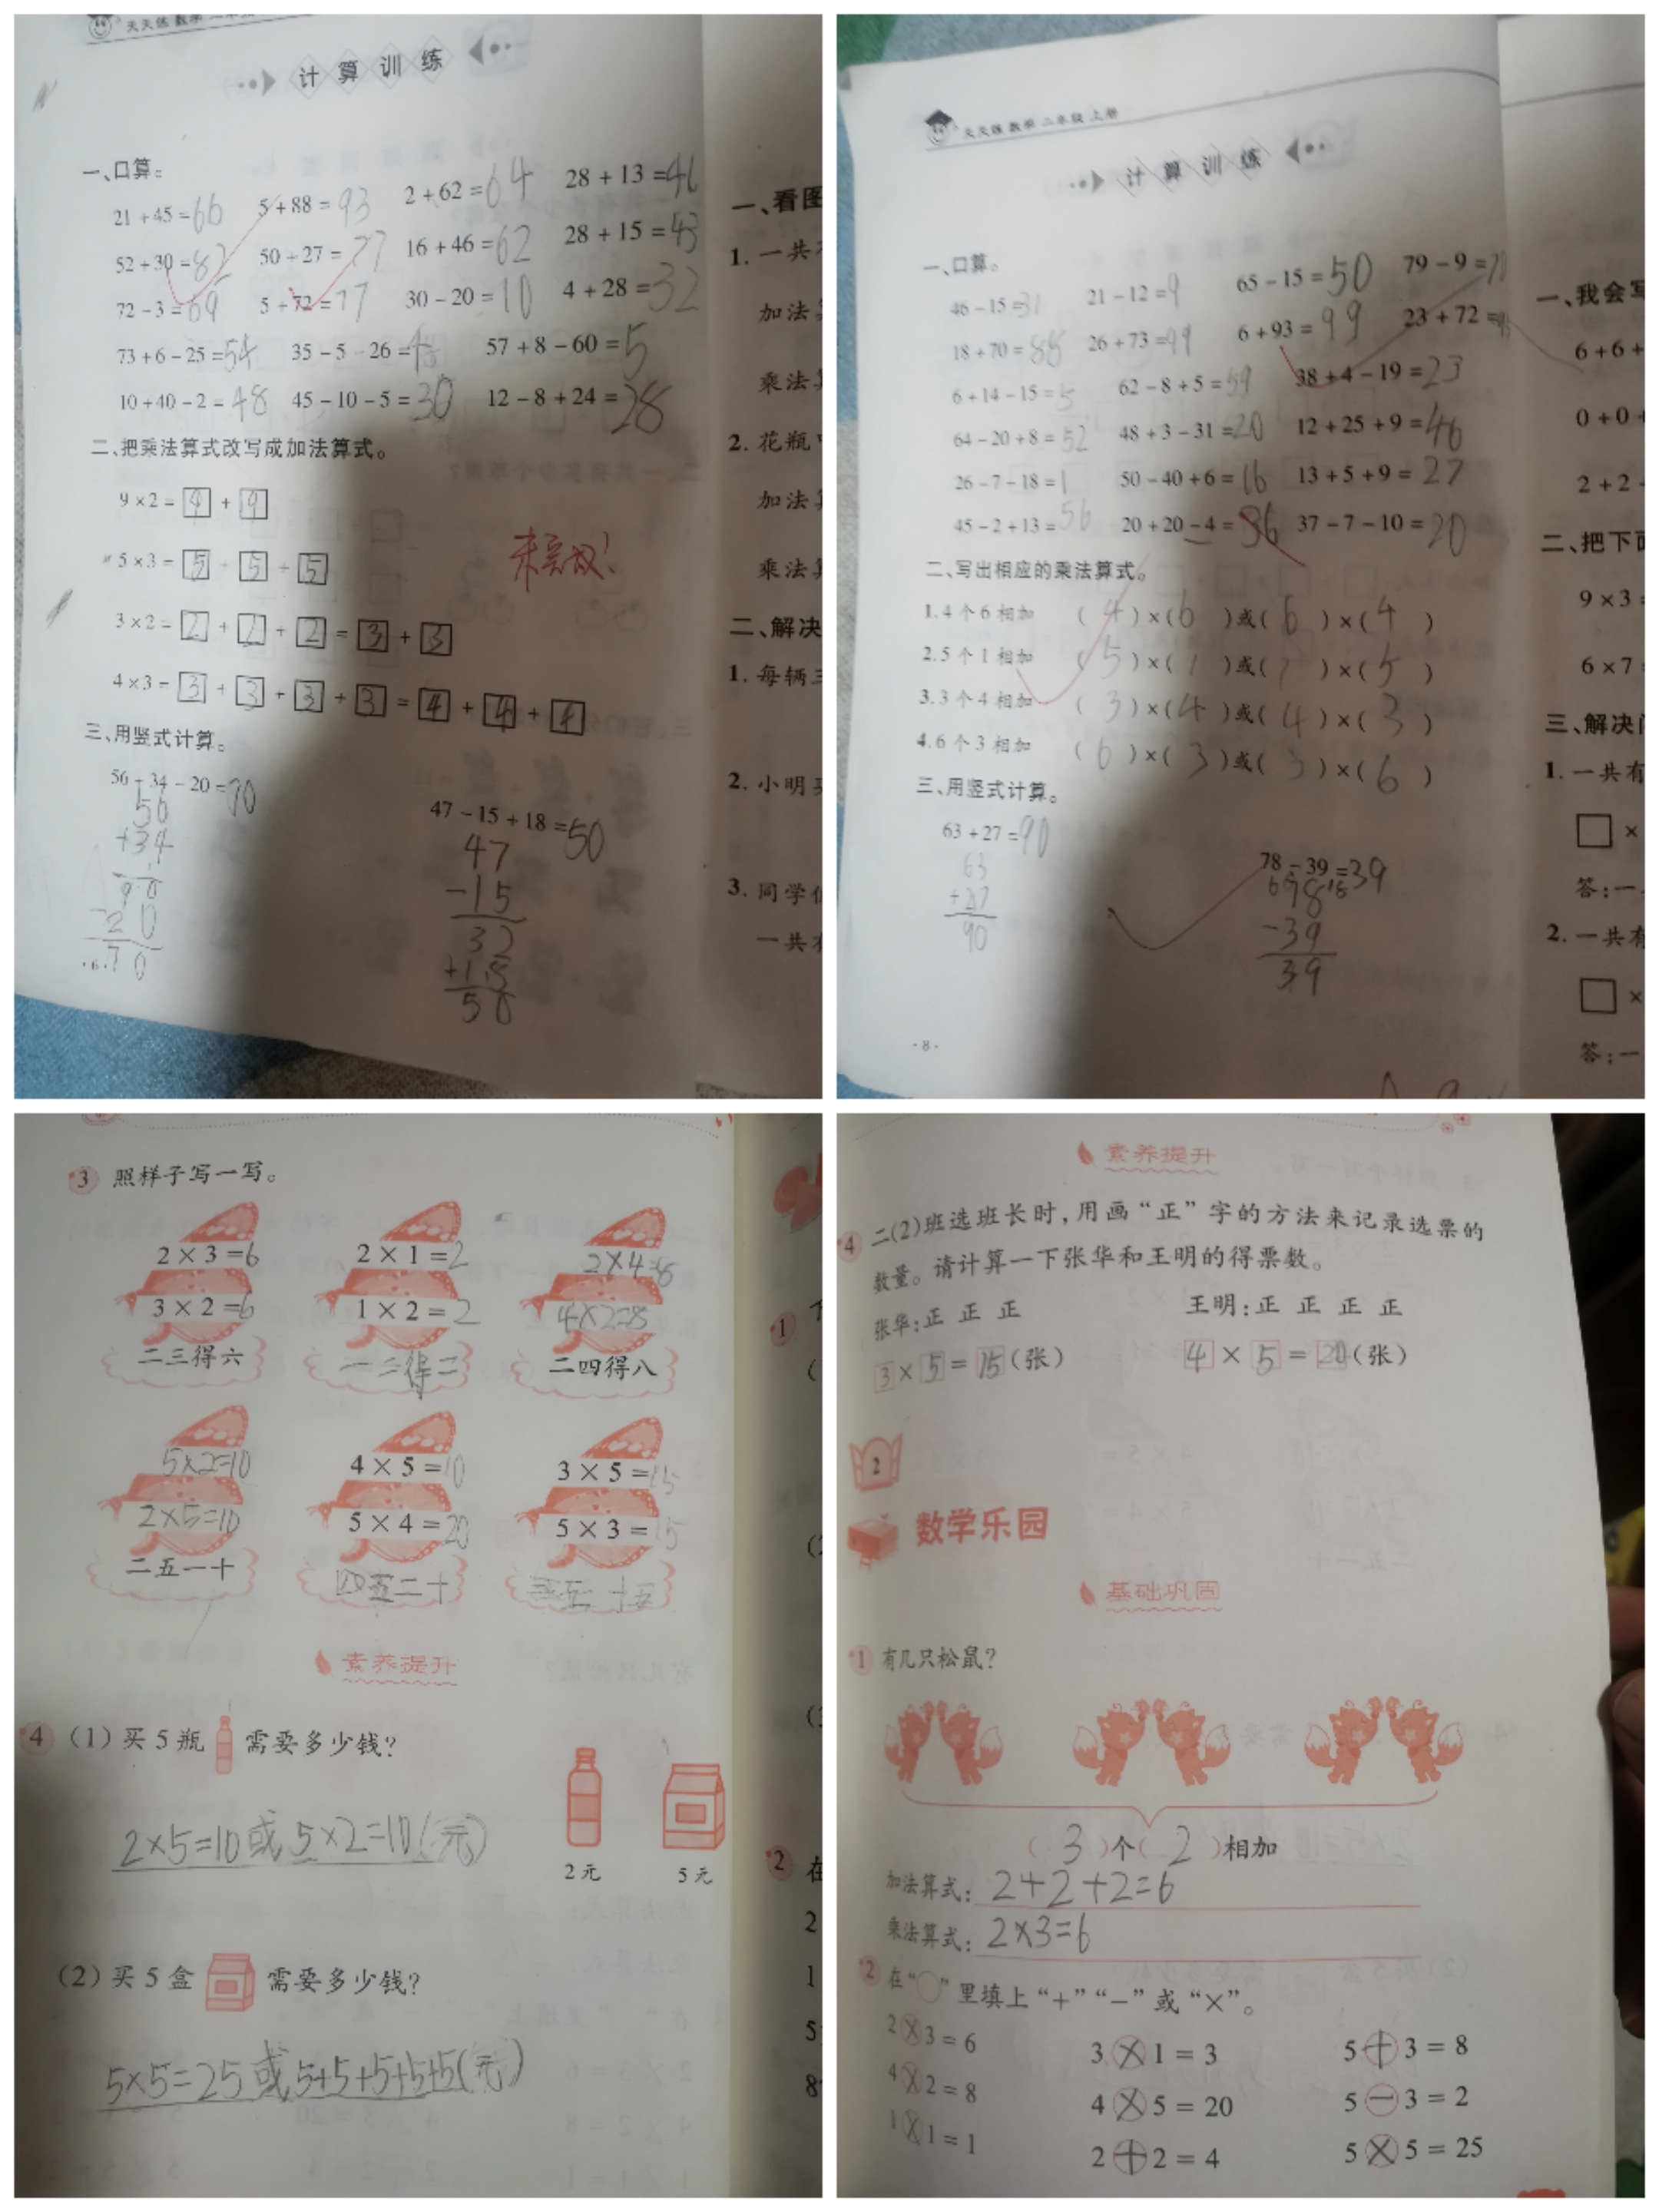 计算训练
一、口算。
21+45=66 5+88=93 2+62=64 28+13=41
52+30=82 50+27=77 16+46=62 28+15=43
72-3=69 5+72=77 30-20=10 4+28=32
73+6-25=54 35-5-26=4 57+8-60=5
10+40-2=48 45-10-5=30 12-8+24=28
二、把乘法算式改写成加法算式。
9×2=9+9
5×3=5+5+5
未完成!
3×2=2+2+2=3+3
4×3=3+3+3+3=4+4+4
三、用竖式计算。
56+34-20=70
56
+34
90
-20
70
47-15+18=50
47
-15
32
+18
50
·6·
一、看图
1.一共
加法
乘法
2.花瓶
加法
乘法
二、解决
1.每辆
2.小明
3.同学
一共
天天练 数学 二年级 上册
计算训练
一、口算。
46-15=31 21-12=9 65-15=50 79-9=70
18+70=88 26+73=99 6+93=99 23+72=
6+14-15=5 62-8+5=59 38+4-19=23
64-20+8=52 48+3-31=20 12+25+9=46
26-7-18=1 50-40+6=16 13+5+9=27
45-2+13=56 20+20-4=36 37-7-10=20
二、写出相应的乘法算式。
1.4个6相加 (4)×(6)或(6)×(4)
2.5个1相加 (5)×(1)或(1)×(5)
3.3个4相加 (3)×(4)或(4)×(3)
4.6个3相加 (6)×(3)或(3)×(6)
三、用竖式计算。
63+27=90
63
+27
90
78-39=39
-39
39
·8·
一、我会写
6+6+
0+0+
2+2
二、把下
9×3
6×7
三、解决
1.一共有
□×
答:一
2.一共有
□×
答:一
3 照样子写一写。
2×3=6 2×1=2 2×4=8
3×2=6 1×2=2 4×2=8
二三得六 一二得二 二四得八
5×2=10 4×5=10 3×5=15
2×5=10 5×4=20 5×3=15
二五一十 四五二十 三五十五
素养提升
4 (1)买5瓶 需要多少钱?
2×5=10或5×2=10(元)
2元 5元
(2)买5盒 需要多少钱?
5×5=25或5+5+5+5+5(元)
1
2 在
2
1
5
8
素养提升
4 二(2)班选班长时,用画“正”字的方法来记录选票的
数量。请计算一下张华和王明的得票数。
张华:正 正 正 王明:正 正 正 正
3×5=15(张) 4×5=20(张)
2
数学乐园
基础巩固
1 有几只松鼠?
(3)个(2)相加
加法算式:2+2+2=6
乘法算式:2×3=6
2 在“○”里填上“+”“-”或“×”。
2×3=6 3×1=3 5+3=8
4×2=8 4×5=20 5-3=2
1×1=1 2+2=4 5×5=25